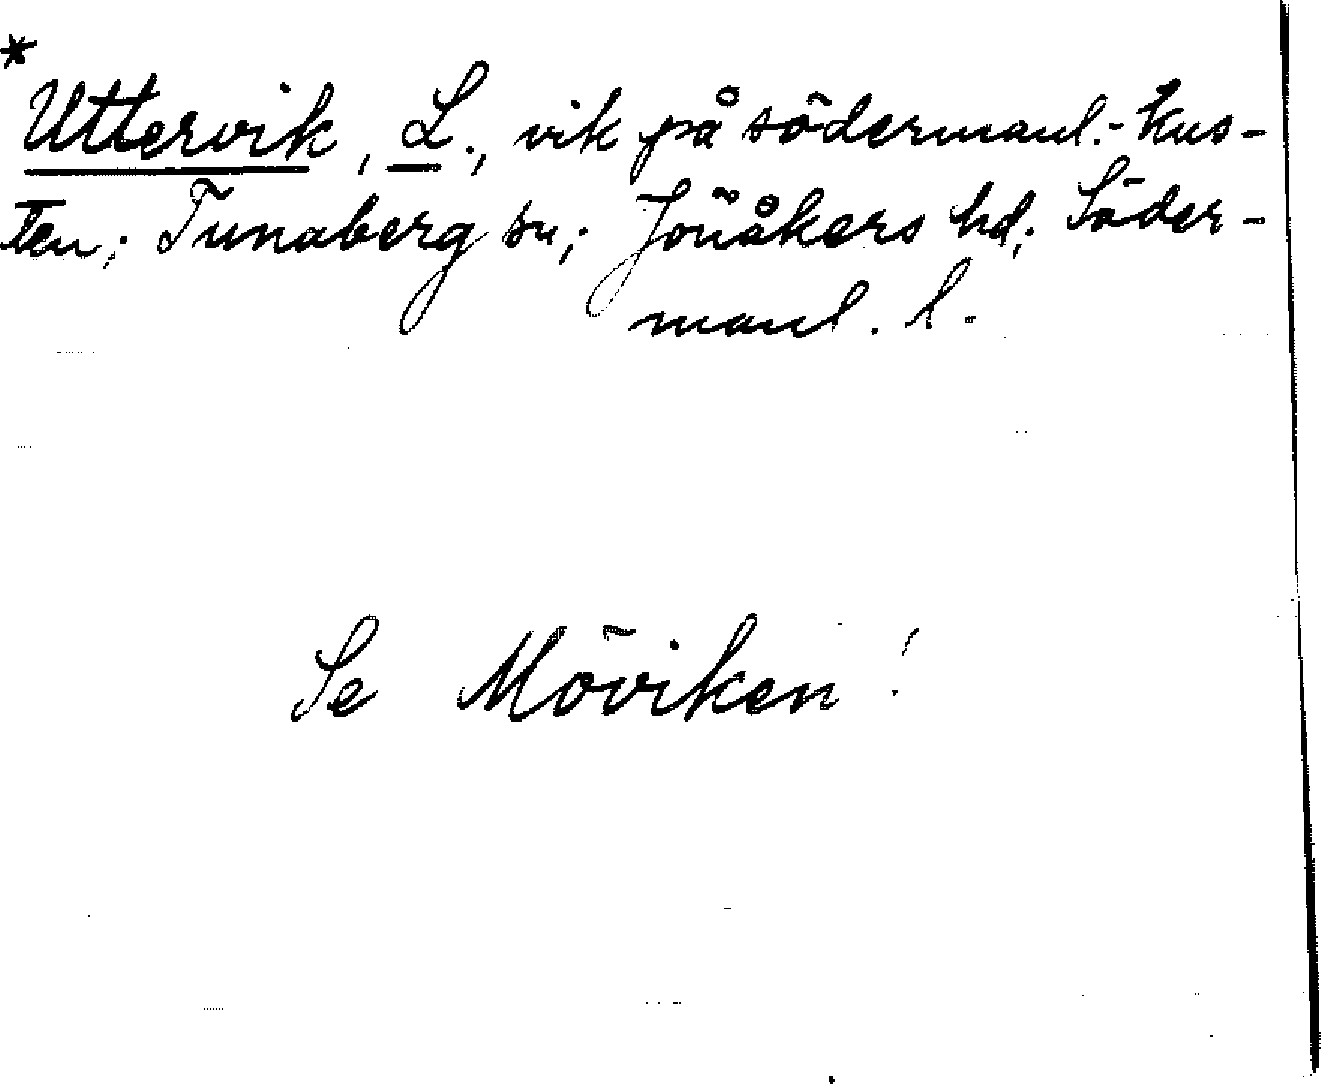 *
Uttervik, L., vik på södermanl.-kus-
ten; Tunaberg sn; Jönåkers hd; Söder-
manl. l.
Se Möviken!